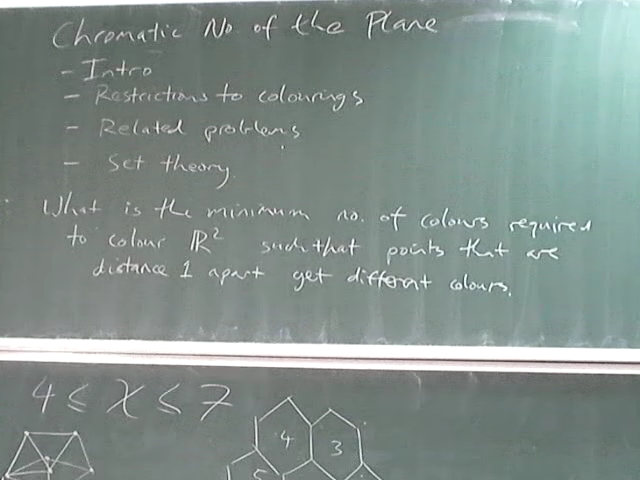 Chromatic No. of the Plane
- Intro
- Restrictions to colourings
- Related problems
- Set theory.
What is the minimum no. of colours required
to colour ℝ² such that points that are
distance 1 apart get different colours.
4 ≤ χ ≤ 7
4 3
5